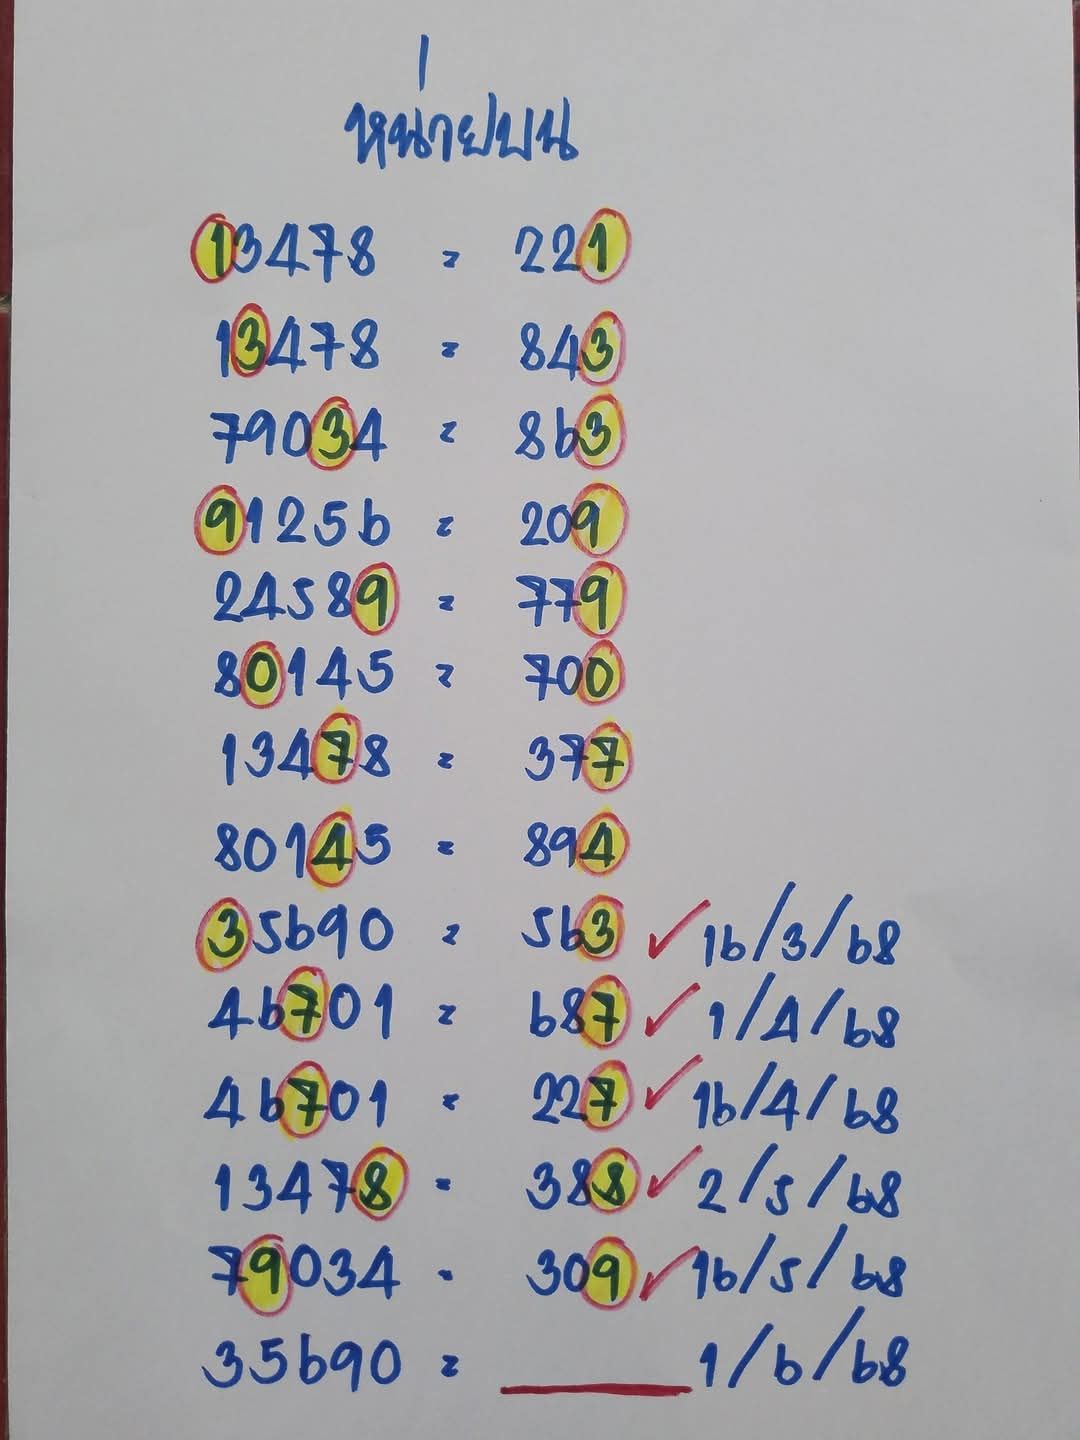 หน่วยบน
13478 = 221
13478 = 843
79034 = 863
91256 = 209
24589 = 779
80145 = 700
13478 = 377
80145 = 894
35690 = 563 ✓ 16/3/68
46701 = 687 ✓ 1/4/68
46701 = 227 ✓ 16/4/68
13478 = 388 ✓ 2/5/68
79034 = 309 ✓ 16/5/68
35690 = ____ 1/6/68